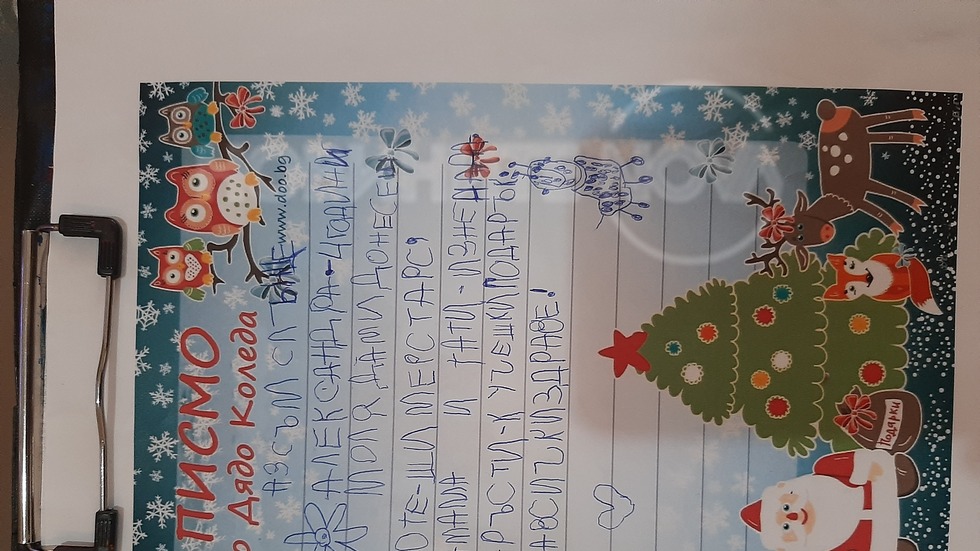 ПИСМО
о Дядо Коледа
АЗ СЪМ СЛЪНЦЕ
www.doo.bg
АЛЕКСАНДРА-4 ГОДИНИ
МОЛЯ ДА МИ ДОНЕСЕШ
ОТЕ-ШИМЕРСТАРС,
МАМА И ТАТИ-ИЗНЕНАДА
РЪСТИ-КУЧЕШКИ ПОДАРЪК.
А ВСИЧКИ ЗДРАВЕ!
Подарки